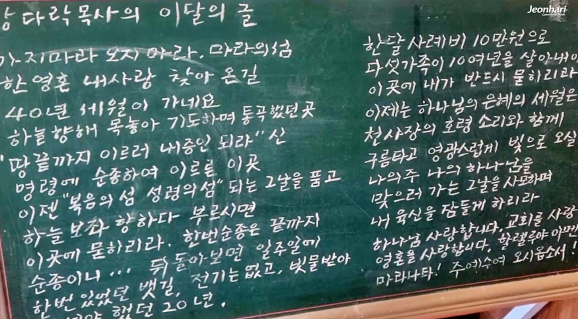 Jeonhari
다락목사의 이달의 글
가지마라 오지마라. 마라의섬
한영혼 내사랑 찾아 온길
40년 세월이 가네요
하늘향해 목놓아 기도하며 통곡했던 곳
"땅끝까지 이르러 내증인 되라" 신
명령에 순종하여 이르른 이곳
이젠 "복음의섬 성령의섬" 되는 그날을 품고
하늘 보좌 향하다 부르시면
이곳에 묻히리라. 한번순종은 끝까지
순종이니... 뒤돌아보면 일주일에
한번 있었던 뱃길, 전기는 없고, 빗물받아
했던 20년.
한달 사례비 10만원으로
다섯가족이 10여년을 살아내
이곳에 내가 반드시 묻히리라
이제는 하나님의 은혜의 세월은
천사장의 호령 소리와 함께
구름타고 영광스럽게 빛으로 오실
나의주 나의 하나님을
맞으러 가는 그날을 사모하며
내 육신을 잠들게 하리라
하나님 사랑합니다. 교회를 사랑
영혼을 사랑합니다. 할렐루야 아멘
마라나타! 주예수여 오시옵소서!